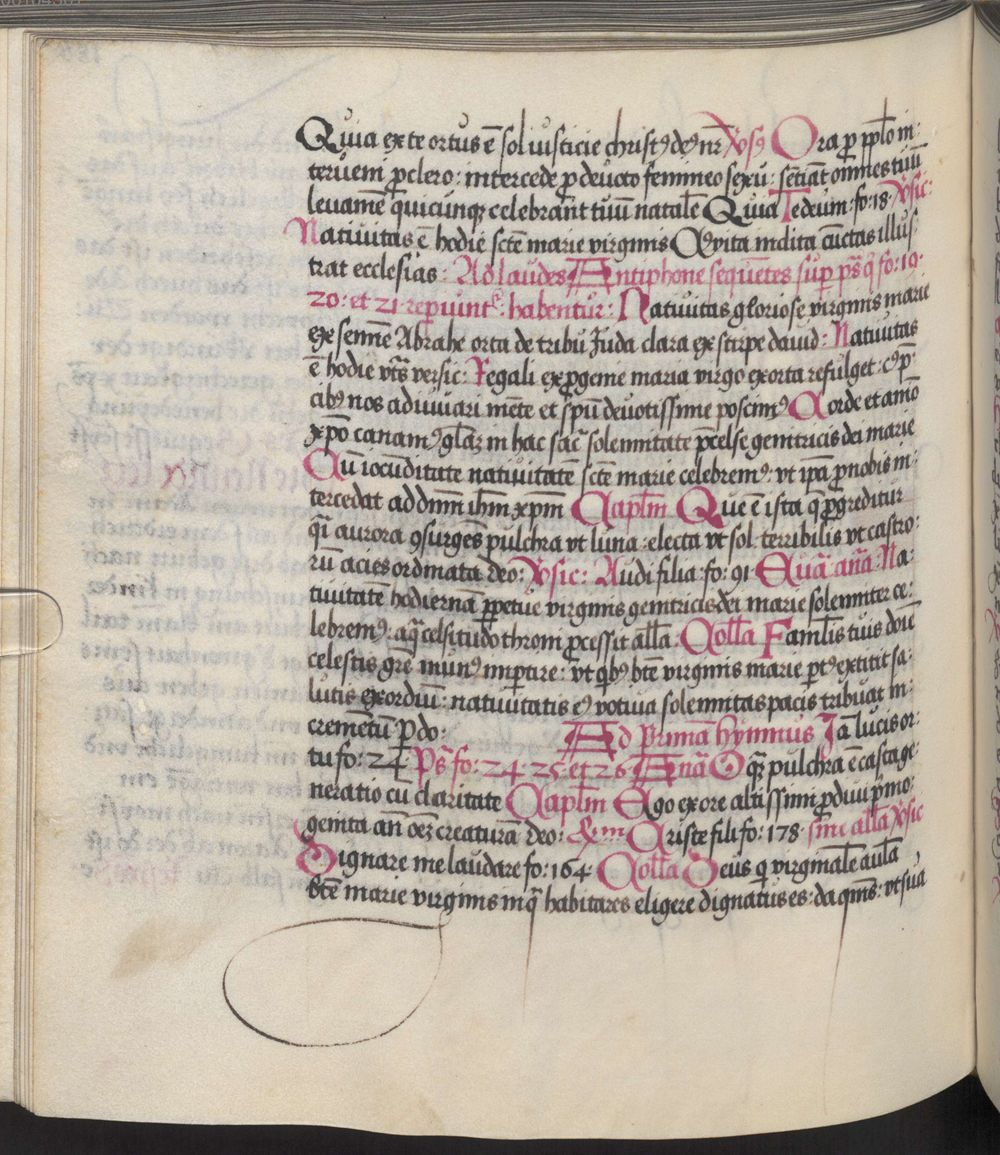 Quia ex te ortus ē sol iusticie christꝰ deꝰ nr̄ Vʼsꝰ Ora ꝓ pplo in:
terueni ꝓ clero: intercede ꝓ deuoto femineo sexu: sētiāt omnes tuū
leuamē quicunqꝫ celebrant tuū natale Quia Tedeum: fo: 18 Vʼsic:
Natiuitas ē hodie scte marie virginis Cʼ vita inclita cūctas illus:
trat ecclesias: Ad laudes Antiphone sequētes sup ps̄ qͥ fo: 19.
20: et 21 repiunt᷑: habentur: Natiuitas gloriose virginis marie
exe semīe Abrahe orta de tribu Juda clara ex stirpe dauid: Natiuitas
ē hodie vts̄ versic: Regali ex ꝓgenie maria virgo exorta refulget: cꝰ p̄
cibꝰ nos adiuuari mēte et spū deuotissime poscimꝰ Corde et aīo
xp̄o canamꝰ glām in hac sacͣ solemnitate p̄celse genitricis dei marie
Cū iocūditate natiuitatē scte marie celebremꝰ: vt ipa ꝓ nobis in:
tercedat ad dnm̄ ihm̄ xpm̄ Caplm̄ Que ē ista q̄ ꝓgreditur
qͣi aurora ꝯsurgēs pulchra vt luna: electa vt sol: terribilis vt castro:
rū acies ordinata deo: Vʼsic: Audi filia: fo: 91 Euā: anā: Na:
tiuitatē hodiernā ꝑpetue virginis genitricis dei marie solemniter ce:
lebremꝰ: a qͣ celsitudo throni ꝓcessit alla: Colla Famlis tuis dn̄e
celestis grē munꝰ impartire: vt qͥbꝰ bte virginis marie ptꝰ extitit sa:
lutis exordiū: natiuitatis eꝰ votiua solemnitas pacis tribuat in
cremētū ꝑ do: Ad primā hymnus Jā lucis or:
tu fo: 24 Ps̄ fo: 24: 25 et 26 Anā O qͣꝫ pulchra ē casta ge:
neratio cū claritate Caplm̄ Ego ex ore altissimi ꝓdiui pͥmo:
genita an̄ oēꝫ creaturā: deo: Criste fili fo: 178: sine alla Vʼsic
Dignare me laudare fo: 164 Colla Deus qͥ virginale aulā
bte marie virginis in qͣ habitares eligere dignatus es: da qm̄s: vt sua